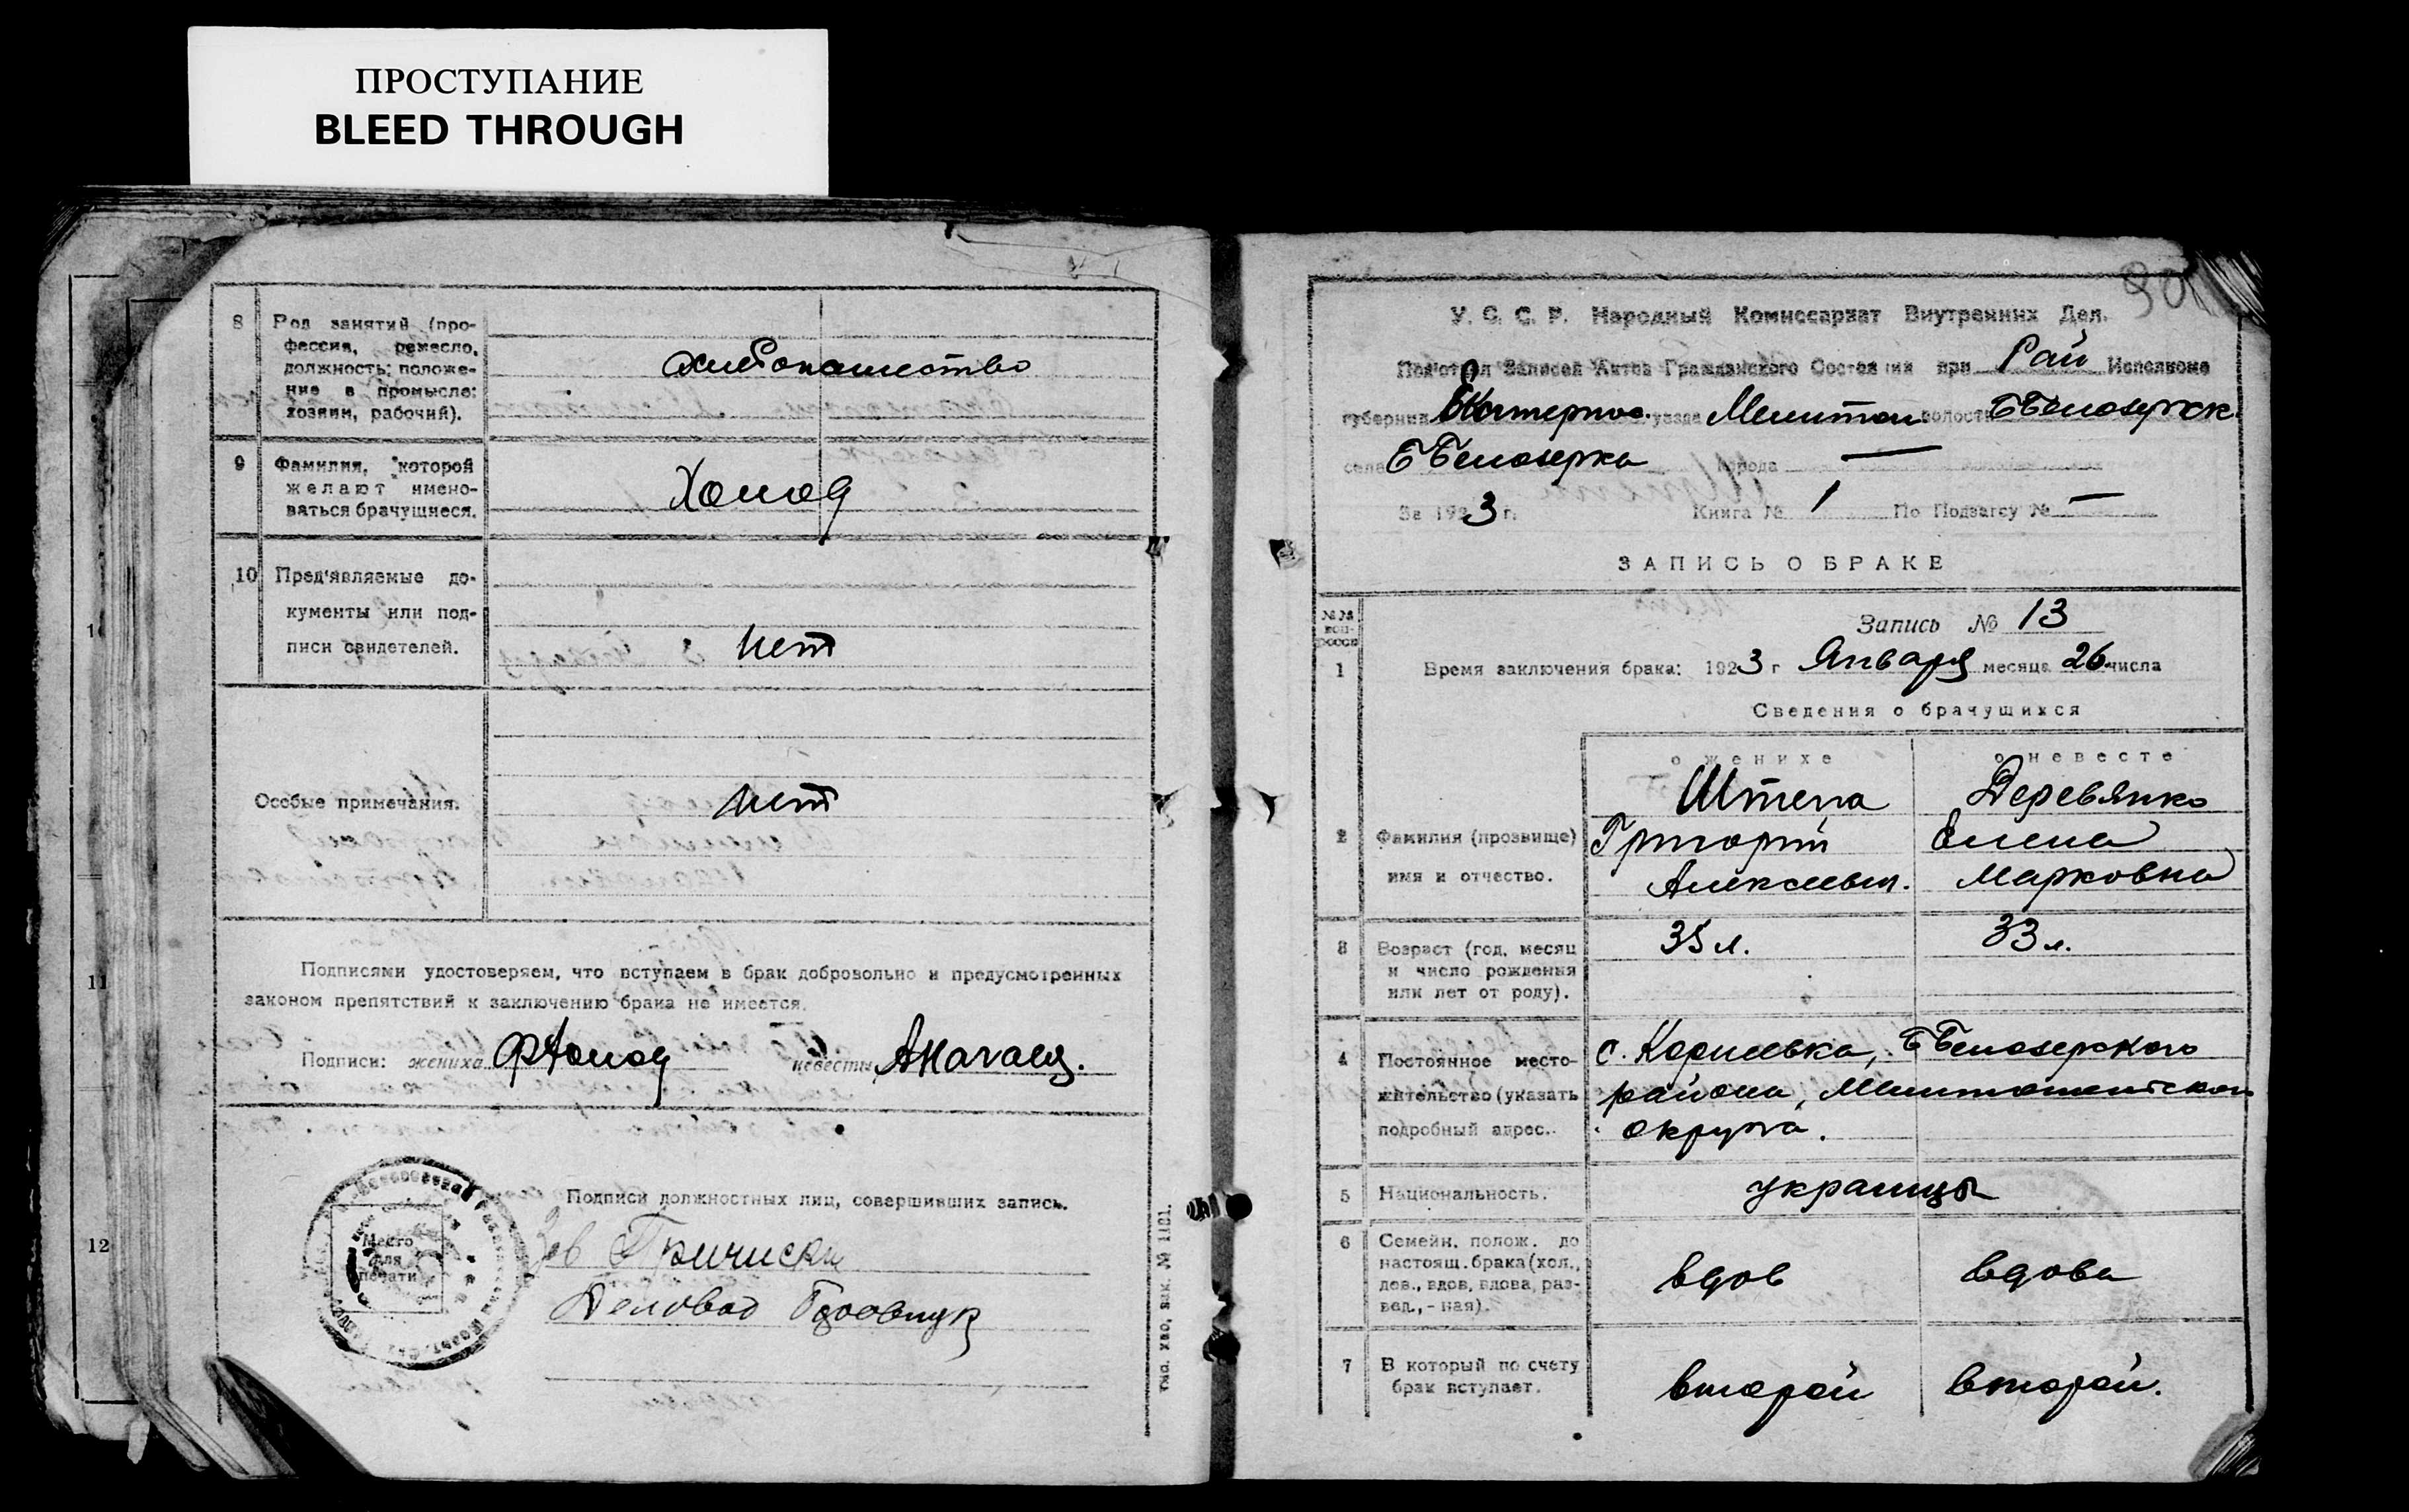 ПРОСТУПАНИЕ
BLEED THROUGH
8 Род занятий (про-
фессия, ремесло,
должность; положе-
ние в промысле:
хозяин, рабочий).
хлебопашество
9 Фамилия, которой
желают имено-
ваться брачущиеся.
Холод
10 Пред'являемые до-
кументы или под-
писи свидетелей.
нет
Особые примечания.
нет
Подписями удостоверяем, что вступаем в брак добровольно и предусмотренных
законом препятствий к заключению брака не имеется.
Подписи: жениха ФХолод невесты
Подписи должностных лиц, совершивших запись.
Место
для
печати
Зав
Деловод
11
12
90
У. С. С. Р. Народный Комиссариат Внутренних Дел.
Под'отдел Записей Актов Гражданского Состояния при Рай Исполкоме
губернии Екатеринос. уезда Мелитоп. волости ББелозерск
села ББелозерка города —
За 1923 г. Книга № 1 По Подзагсу № —
ЗАПИСЬ О БРАКЕ
№№ вопросов
Запись № 13
1 Время заключения брака: 1923 г Января месяца 26 числа
Сведения о брачущихся
о женихе о невесте
2 Фамилия (прозвище)
имя и отчество.
Штепа
Григорий
Алексеевич.
Деревянко
Елена
Марковна
3 Возраст (год, месяц
и число рождения
или лет от роду).
35 л. 33 л.
4 Постоянное место-
жительство (указать
подробный адрес.
с. ББелозерского
района, Мелитопольского
округа.
5 Национальность.
украинцы
6 Семейн. полож. до
настоящ. брака (хол.,
дев., вдов, вдова, раз-
вед., - ная).
вдов вдова
7 В который по счету
брак вступает.
второй второй.